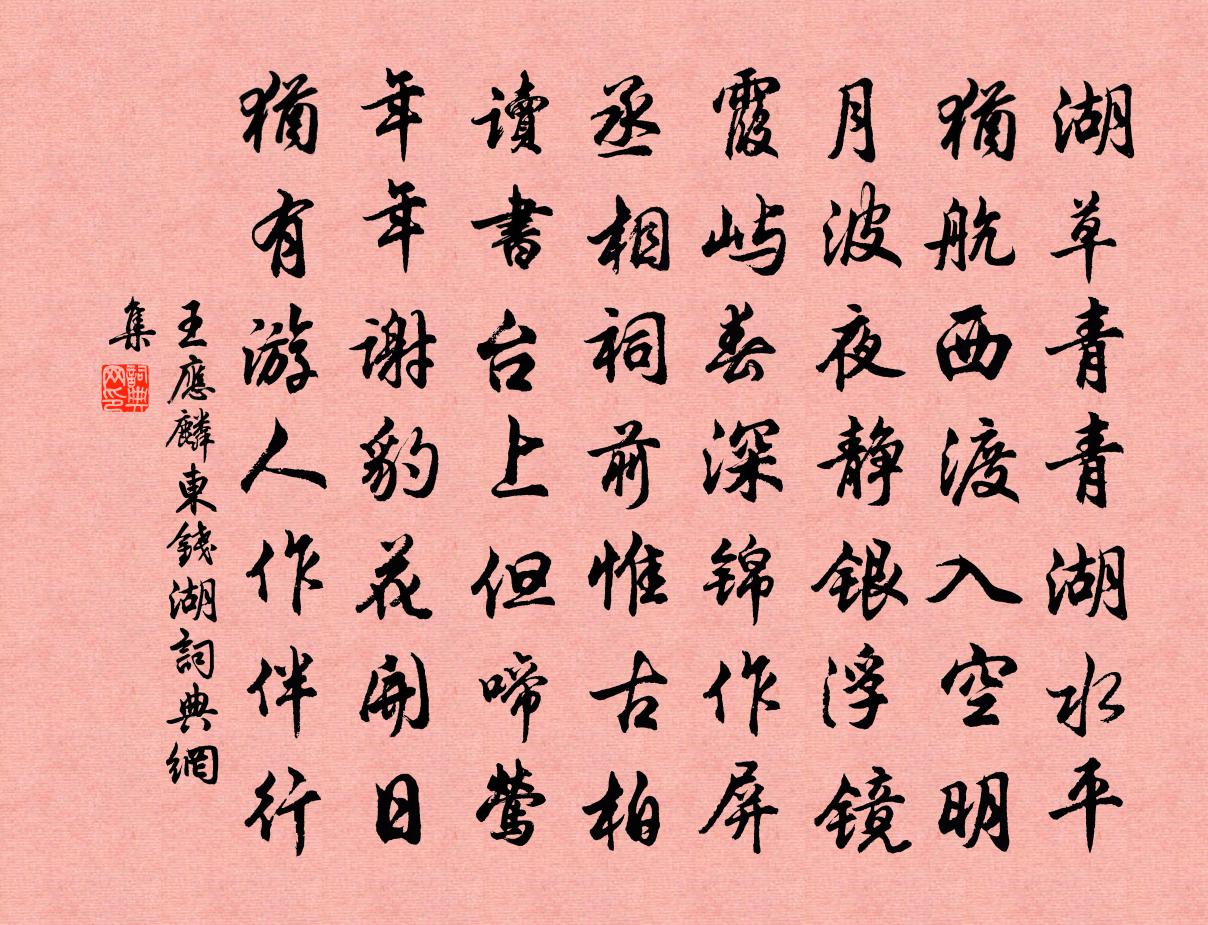 湖草青青湖水平
猶航西渡入空明
月波夜静銀浮鏡
霞屿春深錦作屏
丞相祠前惟古柏
讀書台上但啼鶯
年年謝豹花開日
猶有游人作伴行
王應麟東錢湖詞典網
集
詞典
网印